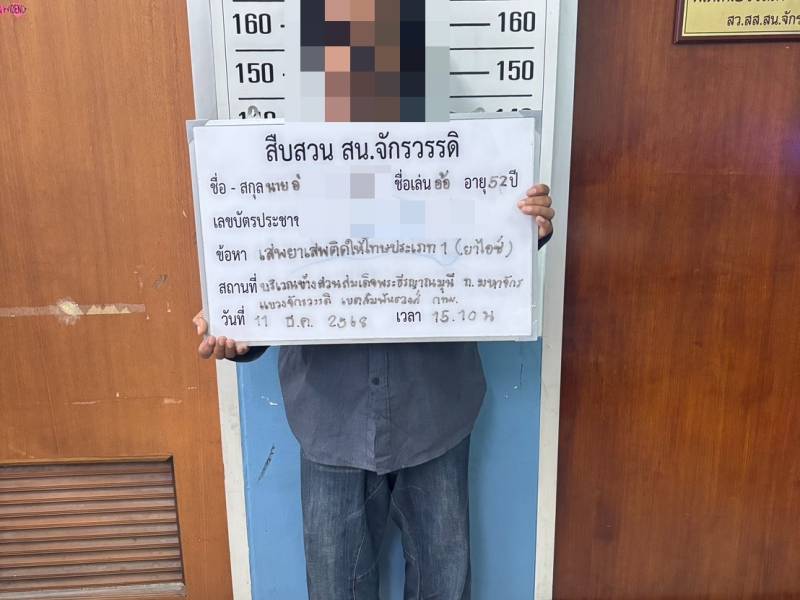 160 160
150 150
สว.สส.สน.จักร
สืบสวน สน.จักรวรรดิ
ชื่อ - สกุล นาย อ๋ ชื่อเล่น อ๋อ อายุ 52 ปี
เลขบัตรประชาช
ข้อหา เสพยาเสพติดให้โทษประเภท 1 (ยาไอซ์)
สถานที่ บริเวณข้างสวนสมเด็จพระธีรญาณมุนี ถ.มหาจักร
แขวงจักรวรรดิ เขตสัมพันธวงศ์ กทม.
วันที่ 11 ธ.ค. 2568 เวลา 15.10 น